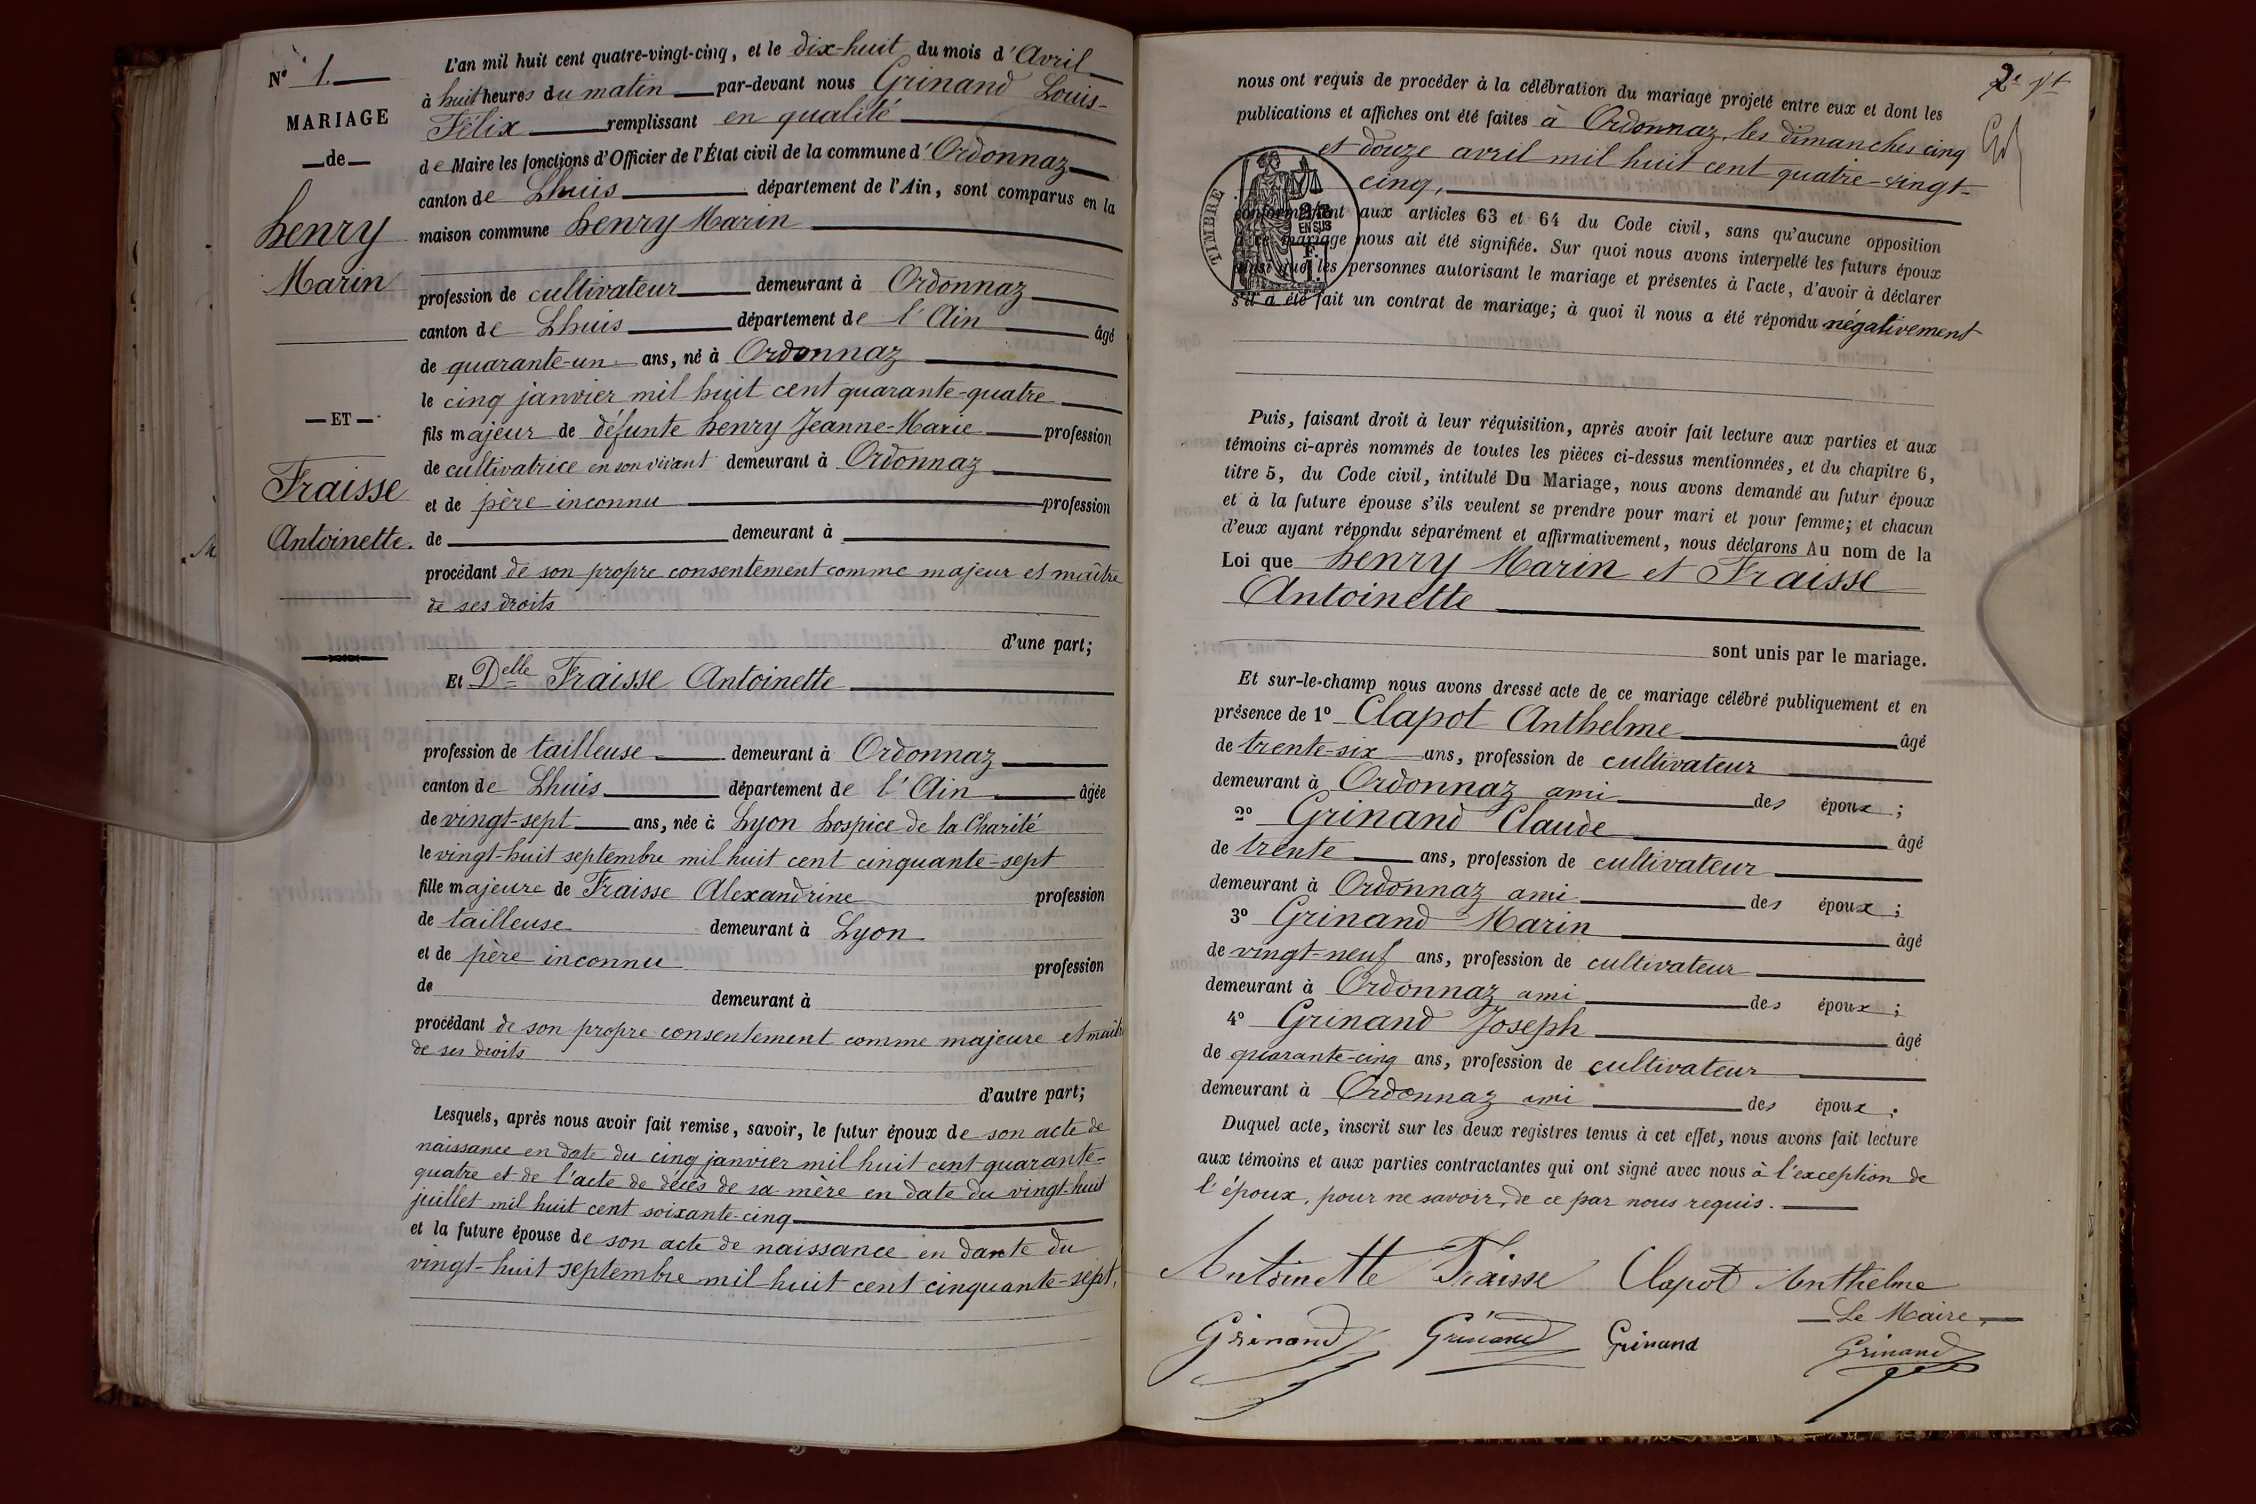 N° 1.
MARIAGE
de
henry
Marin
ET
Fraisse
Antoinette.
L'an mil huit cent quatre-vingt-cinq, et le dix-huit du mois d'Avril
à huit heures du matin par-devant nous Grinand Louis-
Félix remplissant en qualité
de Maire les fonctions d'Officier de l'État civil de la commune d'Ordonnaz
canton de Lhuis département de l'Ain, sont comparus en la
maison commune henry Marin
profession de cultivateur demeurant à Ordonnaz
canton de Lhuis département de l'Ain âgé
de quarante-un ans, né à Ordonnaz
le cinq janvier mil huit cent quarante-quatre
fils majeur de défunte henry Jeanne-Marie profession
de cultivatrice en son vivant demeurant à Ordonnaz
et de père inconnu profession
de demeurant à
procédant de son propre consentement comme majeur et maître
de ses droits
d'une part;
Et Delle Fraisse Antoinette
profession de tailleuse demeurant à Ordonnaz
canton de Lhuis département de l'Ain âgée
de vingt-sept ans, née à Lyon hospice de la Charité
le vingt-huit septembre mil huit cent cinquante-sept
fille majeure de Fraisse Alexandrine profession
de tailleuse demeurant à Lyon
et de père inconnu profession
de demeurant à
procédant de son propre consentement comme majeure et maît
de ses droits
d'autre part;
Lesquels, après nous avoir fait remise, savoir, le futur époux de son acte de
naissance en date du cinq janvier mil huit cent quarante-
quatre et de l'acte de décès de sa mère en date du vingt-huit
juillet mil huit cent soixante-cinq
et la future épouse de son acte de naissance en dante du
vingt-huit septembre mil huit cent cinquante-sept,
2e
nous ont requis de procéder à la célébration du mariage projeté entre eux et dont les
publications et affiches ont été faites à Ordonnaz, les dimanches cinq
et douze avril mil huit cent quatre-vingt-
cinq,
TIMBRE
EN SUS
conformément aux articles 63 et 64 du Code civil, sans qu'aucune opposition
à ce mariage nous ait été signifiée. Sur quoi nous avons interpellé les futurs époux
ainsi que les personnes autorisant le mariage et présentes à l'acte, d'avoir à déclarer
s'il a été fait un contrat de mariage; à quoi il nous a été répondu négativement
Puis, faisant droit à leur réquisition, après avoir fait lecture aux parties et aux
témoins ci-après nommés de toutes les pièces ci-dessus mentionnées, et du chapitre 6,
titre 5, du Code civil, intitulé Du Mariage, nous avons demandé au futur époux
et à la future épouse s'ils veulent se prendre pour mari et pour femme; et chacun
d'eux ayant répondu séparément et affirmativement, nous déclarons Au nom de la
Loi que henry Marin et Fraisse
Antoinette
sont unis par le mariage.
Et sur-le-champ nous avons dressé acte de ce mariage célébré publiquement et en
présence de 1° Clapot Anthelme âgé
de trente-six ans, profession de cultivateur
demeurant à Ordonnaz ami des époux ;
2° Grinand Claude âgé
de trente ans, profession de cultivateur
demeurant à Ordonnaz ami des époux ;
3° Grinand Marin âgé
de vingt-neuf ans, profession de cultivateur
demeurant à Ordonnaz ami des époux ;
4° Grinand Joseph âgé
de quarante-cinq ans, profession de cultivateur
demeurant à Ordonnaz ami des époux.
Duquel acte, inscrit sur les deux registres tenus à cet effet, nous avons fait lecture
aux témoins et aux parties contractantes qui ont signé avec nous à l'exception de
l'époux, pour ne savoir, de ce par nous requis.
Antoinette Fraisse Clapot Anthelme
Le Maire,
Grinand Grinand Grinand Grinand